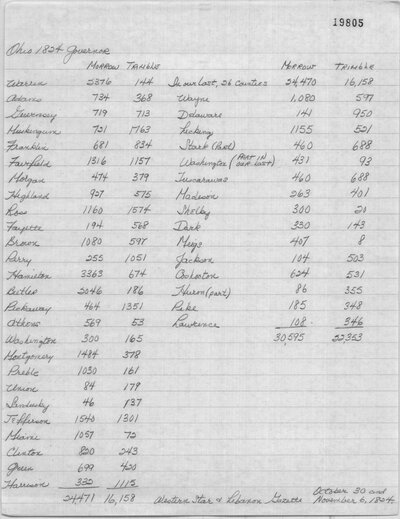 19805
Ohio 1824 Governor
Morrow Trimble Morrow Trimble
Warren 2376 144 In our last, 26 counties 24,470 16,158
Adams 734 368 Wayne 1,080 597
Guernsey 719 713 Delaware 141 950
Muskingum 721 1763 Licking 1155 521
Franklin 681 834 Stark (Part) 460 688
Fairfield 1316 1157 Washington (part in our last) 431 93
Morgan 474 379 Tuscarawas 460 688
Highland 927 575 Madison 263 401
Ross 1160 1574 Shelby 300 20
Fayette 194 568 Dark 330 143
Brown 1080 598 Meigs 407 8
Perry 255 1051 Jackson 104 503
Hamilton 3363 674 Coshocton 624 531
Butler 2046 186 Huron (part) 86 355
Pickaway 464 1351 Pike 185 348
Athens 569 53 Lawrence 108 346
Washington 300 165 30,595 22,353
Montgomery 1484 378
Preble 1030 161
Union 84 179
Sandusky 46 137
Jefferson 1540 1301
Miami 1057 72
Clinton 820 243
Green 699 420
Harrison 332 1115
24,471 16,158 Western Star & Lebanon Gazette October 30 and November 6, 1824